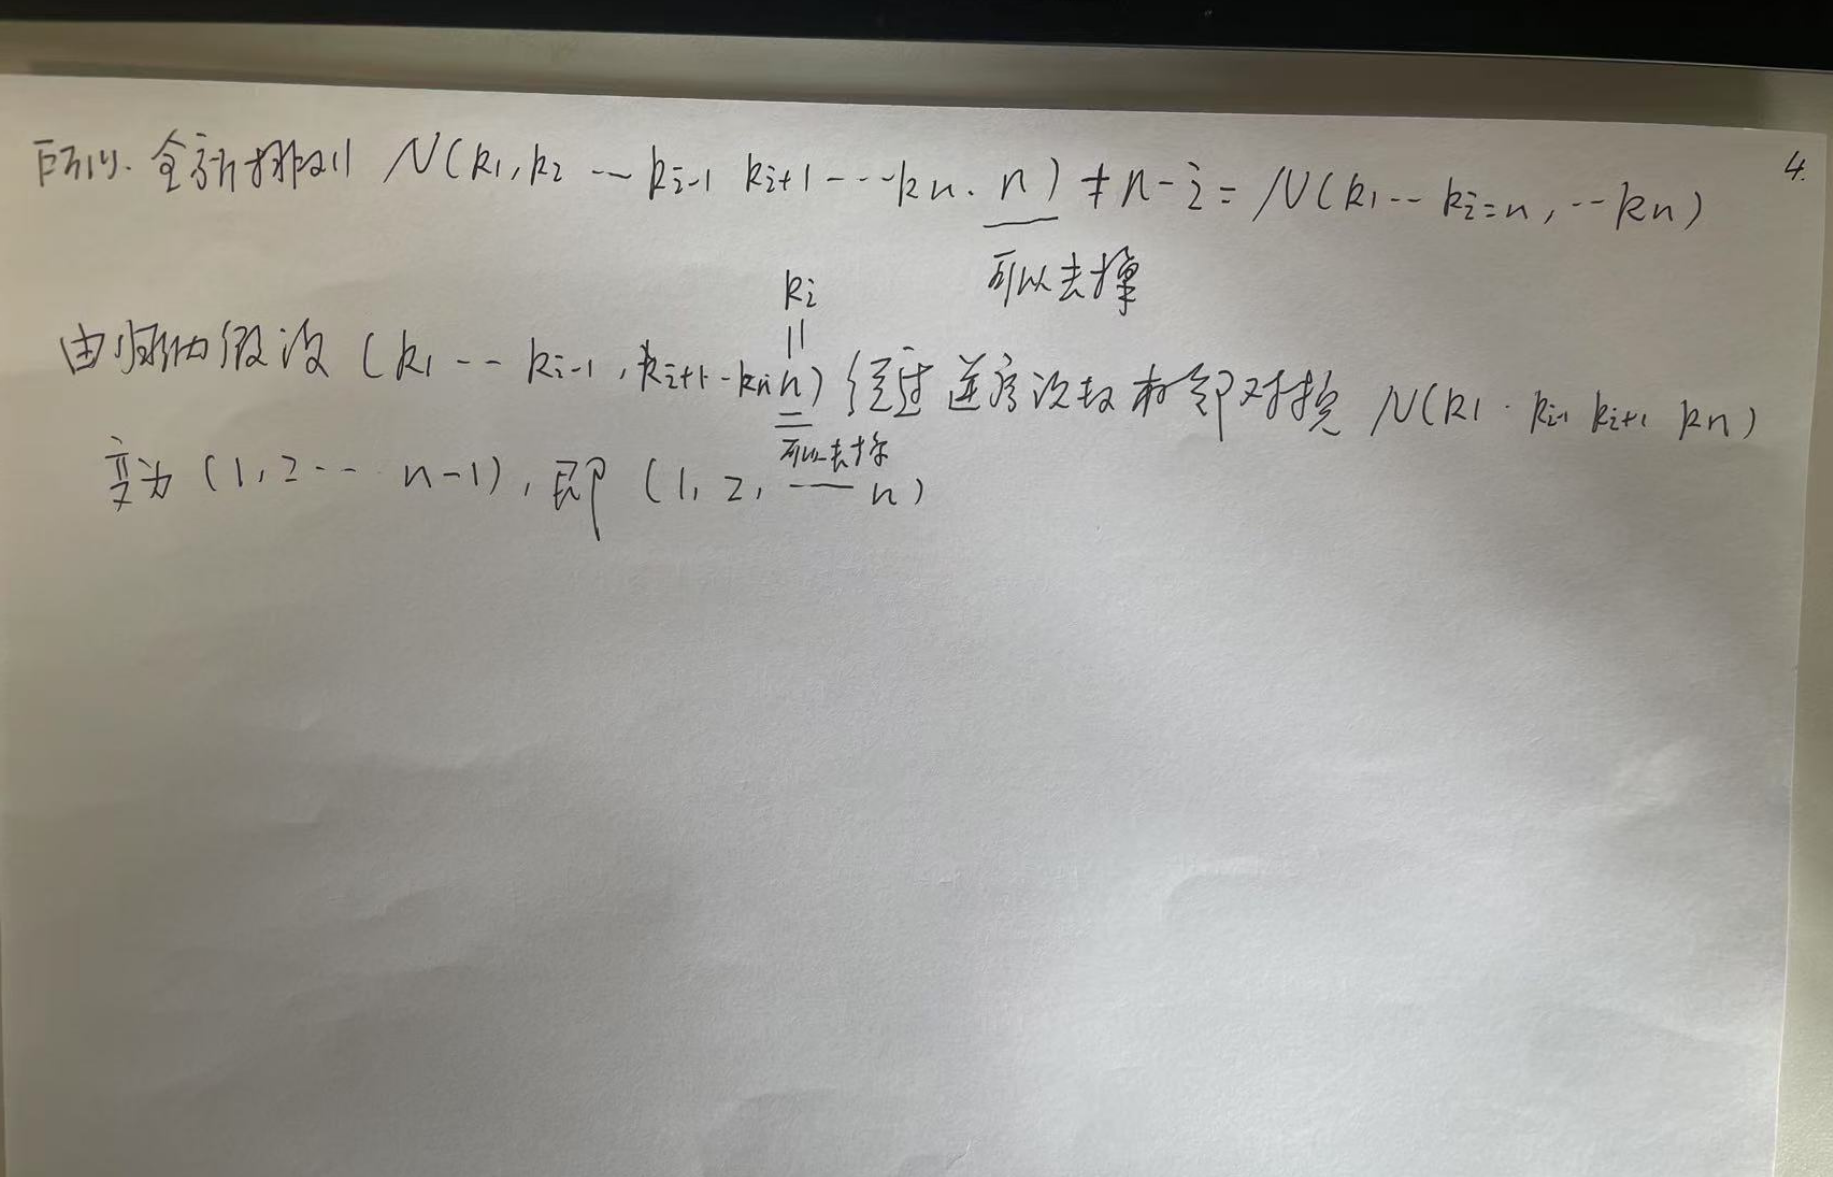 4.
所以.全新排列 N(k1,k2 -- ki-1 ki+1 ---kn. n) + n-i = N(k1-- ki=n, --kn)
可以去掉
ki
||
由归纳假设 (k1 -- ki-1, ki+1-kn n) 经过逆序次数相邻对换 N(k1 · ki-1 ki+1 kn)
可以去掉
变为 (1,2-- n-1), 即 (1, 2, —— n)